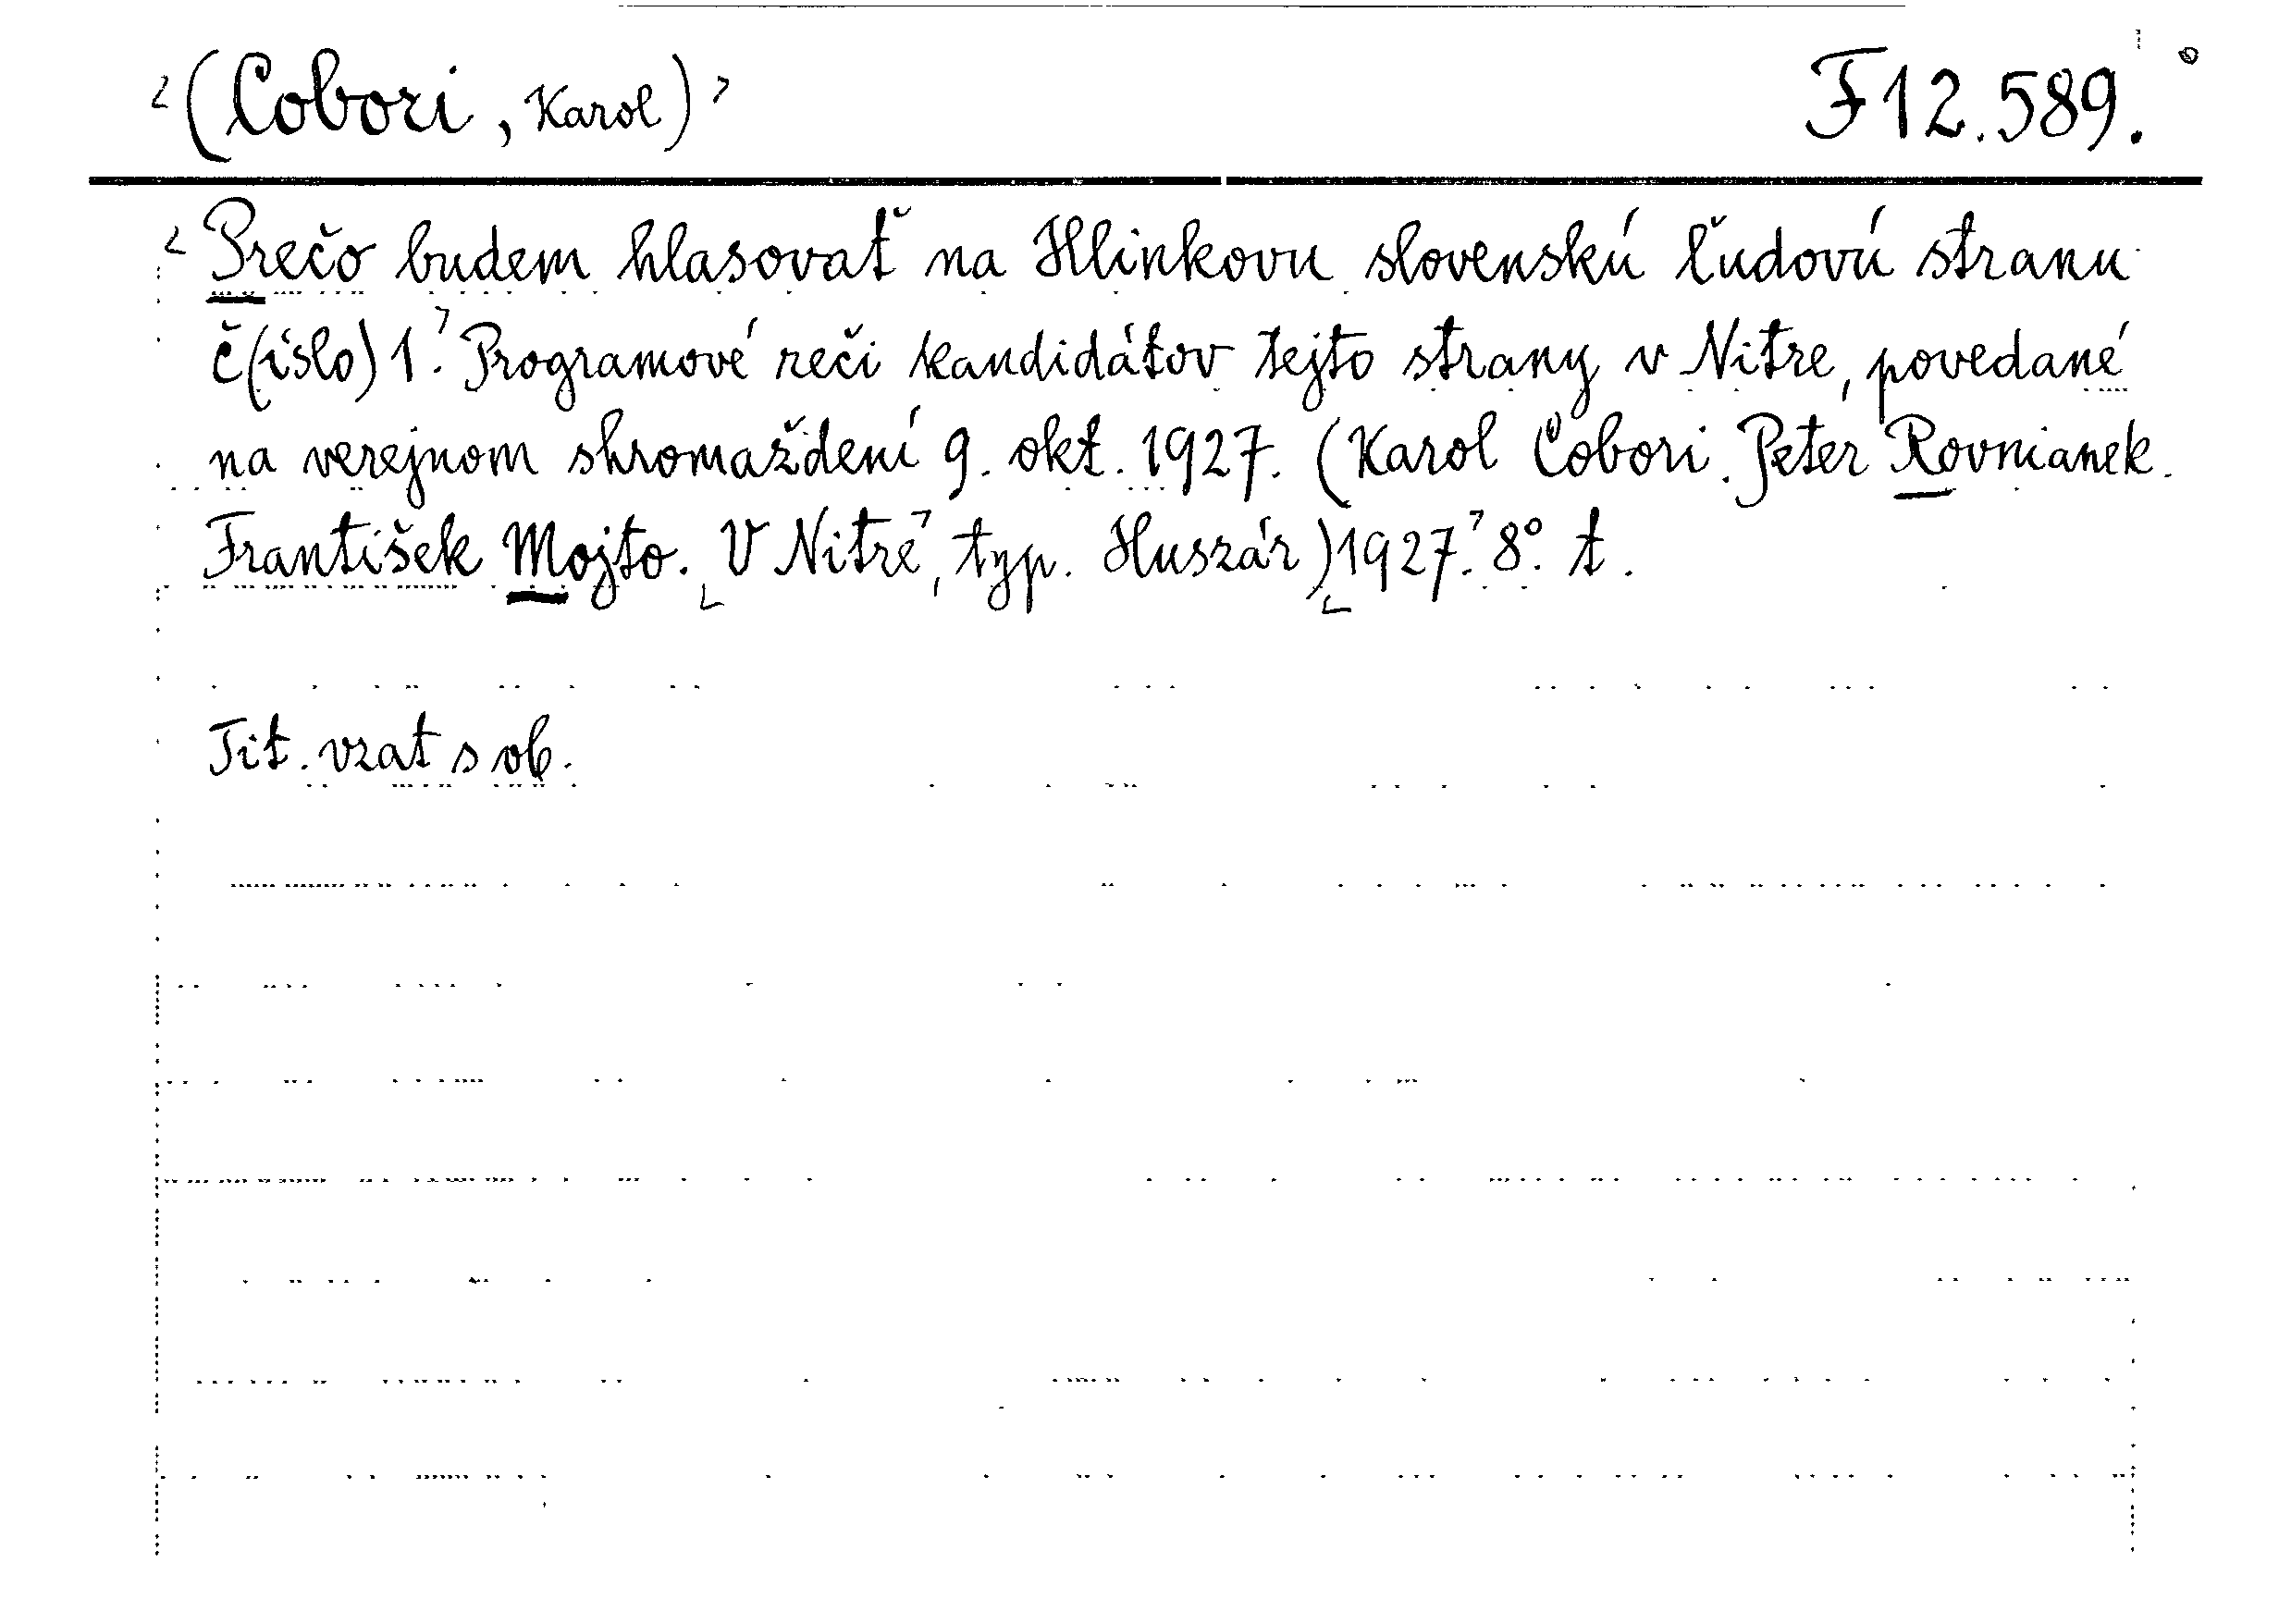 (Cobori, Karol) F 12.589.
Prečo budem hlasovať na Hlinkovu slovenskú ľudovú stranu
č(íslo) 1. Programové reči kandidátov tejto strany v Nitre, povedané
na verejnom shromaždení 9. okt. 1927. (Karol Cobori. Peter Rovnianek.
František Mojto. V Nitre, typ. Huszár) 1927. 8°. t.
Tit. vzat s ob.